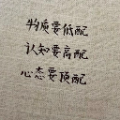 物质要低配
认知要高配
心态要顶配